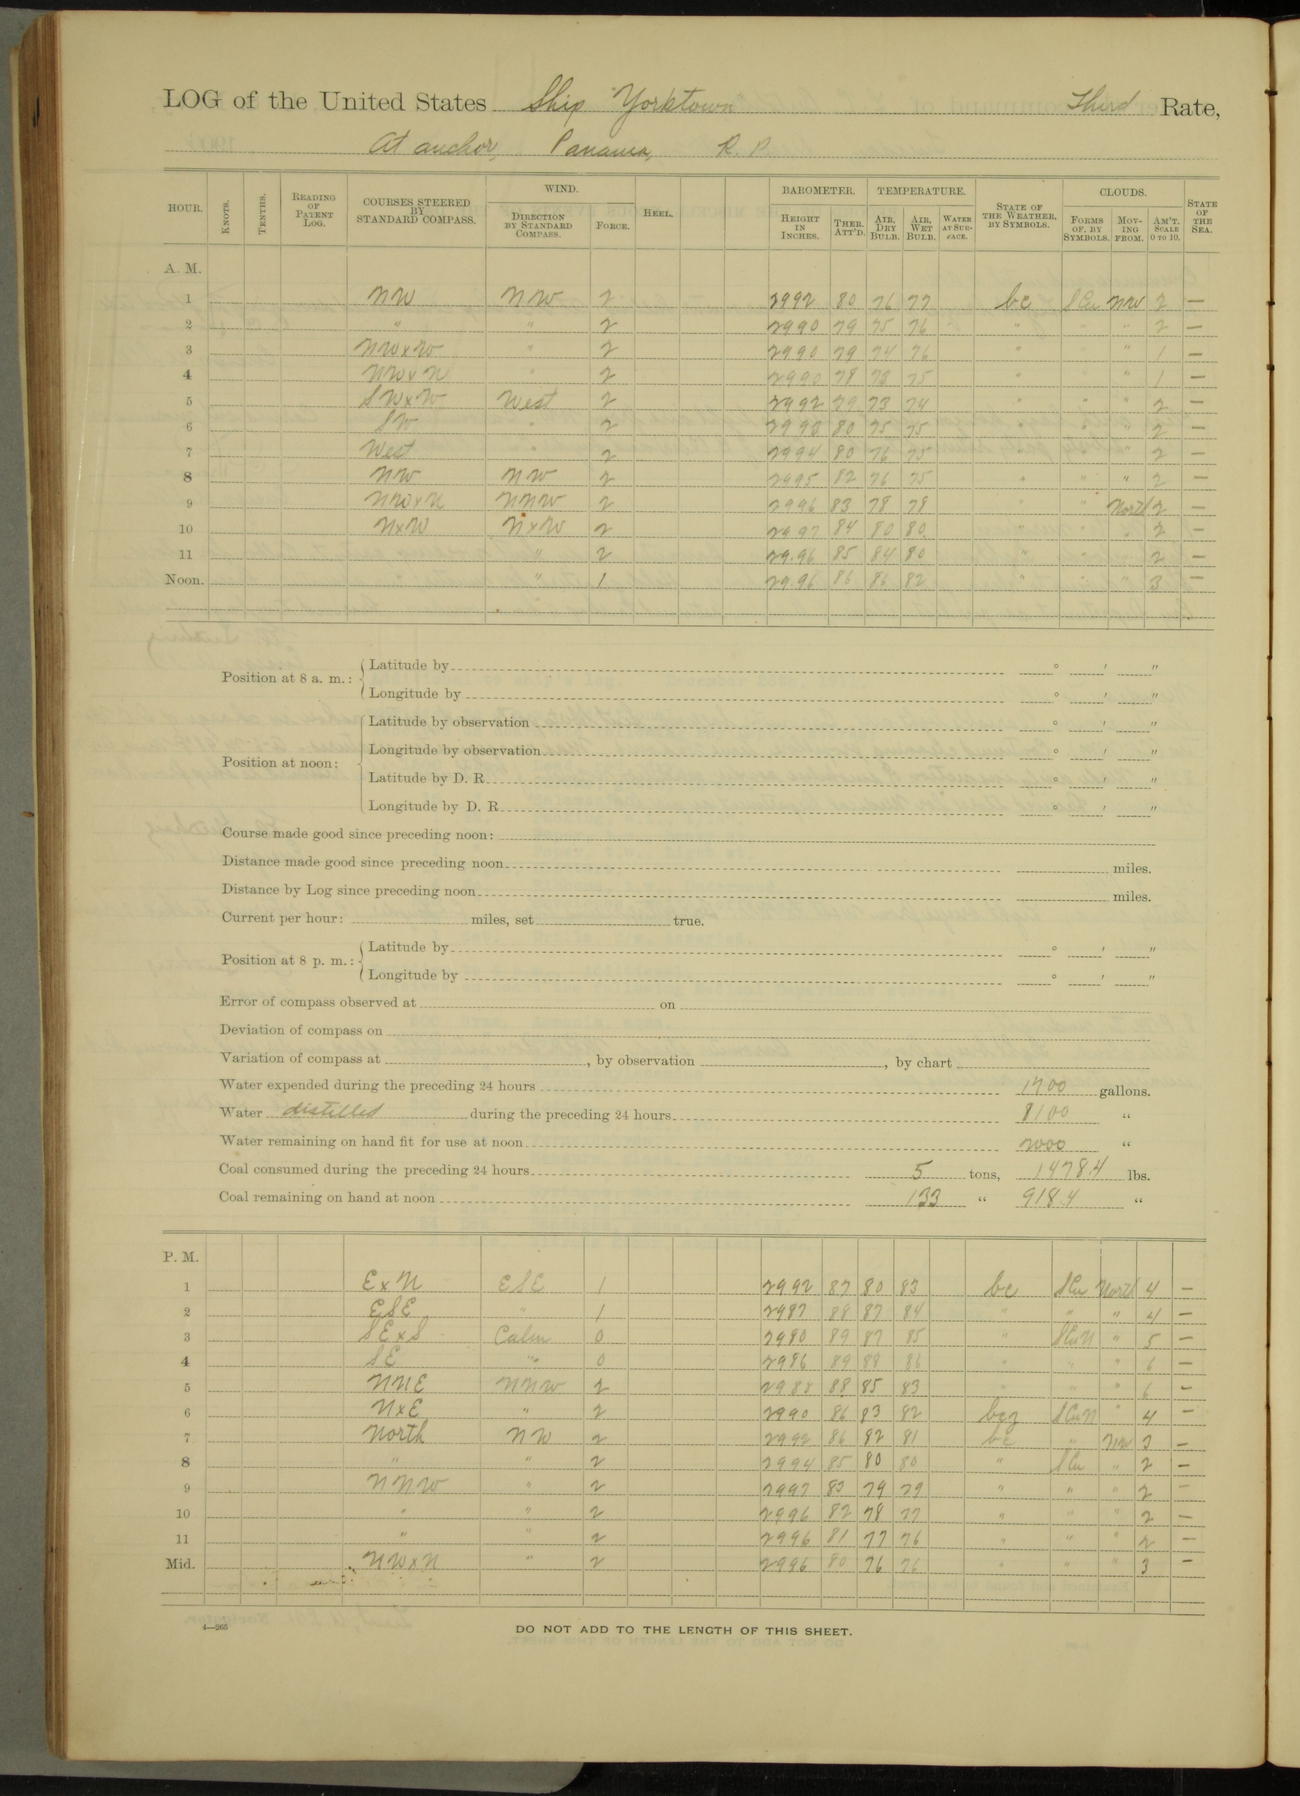 LOG of the United States Ship Yorktown Third Rate,
At anchor, Panama, R. P.
HOUR. KNOTS. TENTHS. READING OF PATENT LOG. COURSES STEERED BY STANDARD COMPASS. WIND. DIRECTION BY STANDARD COMPASS. FORCE. HEEL. BAROMETER. HEIGHT IN INCHES. THER. ATT'D. TEMPERATURE. AIR, DRY BULB. AIR, WET BULB. WATER AT SURFACE. STATE OF THE WEATHER, BY SYMBOLS. CLOUDS. FORMS OF, BY SYMBOLS. MOVING FROM. AM'T. SCALE 0 TO 10. STATE OF THE SEA.
A. M.
1 NW NW 2 2992 80 76 77 bc SCu NW 2 —
2 " " 2 2990 79 75 76 " " " 2 —
3 NWxW " 2 2990 79 74 76 " " " 1 —
4 NWxN " 2 2990 78 73 75 " " " 1 —
5 SWxW West 2 2992 79 73 74 " " " 2 —
6 SW " 2 2993 80 75 75 " " " 2 —
7 West " 2 2994 80 76 75 " " " 2 —
8 NW NW 2 2995 82 76 75 " " " 2 —
9 NWxN NNW 2 2996 83 78 78 " " North 2 —
10 NxW NxW 2 2997 84 80 80 " " " 2 —
11 " " 2 29.96 85 84 80 " " " 2 —
Noon. " " 1 29.96 86 86 82 " " " 3 —
Position at 8 a. m.: Latitude by ° ' "
Longitude by ° ' "
Position at noon: Latitude by observation ° ' "
Longitude by observation ° ' "
Latitude by D. R. ° ' "
Longitude by D. R. ° ' "
Course made good since preceding noon:
Distance made good since preceding noon miles.
Distance by Log since preceding noon miles.
Current per hour: miles, set true.
Position at 8 p. m.: Latitude by ° ' "
Longitude by ° ' "
Error of compass observed at on
Deviation of compass on
Variation of compass at , by observation , by chart
Water expended during the preceding 24 hours 1700 gallons.
Water distilled during the preceding 24 hours 8100 "
Water remaining on hand fit for use at noon 2000 "
Coal consumed during the preceding 24 hours 5 tons, 1478.4 lbs.
Coal remaining on hand at noon 133 " 918.4 "
P. M.
1 ExN ESE 1 2992 87 80 83 bc SCu North 4 —
2 ESE " 1 2987 88 87 84 " " " 4 —
3 SExS Calm 0 2980 89 87 85 " SCuN " 5 —
4 SE " 0 2986 89 88 86 " " " 6 —
5 NNE NNW 2 2988 88 85 83 " " " 6 —
6 NxE " 2 2990 86 83 82 bcq SCuN " 4 —
7 North NW 2 2992 86 82 81 bc " NW 3 —
8 " " 2 2994 85 80 80 " SCu " 2 —
9 NNW " 2 2997 83 79 79 " " " 2 —
10 " " 2 2996 82 78 77 " " " 2 —
11 " " 2 2996 81 77 76 " " " 2 —
Mid. NWxN " 2 2996 80 76 76 " " " 3 —
4—265
DO NOT ADD TO THE LENGTH OF THIS SHEET.